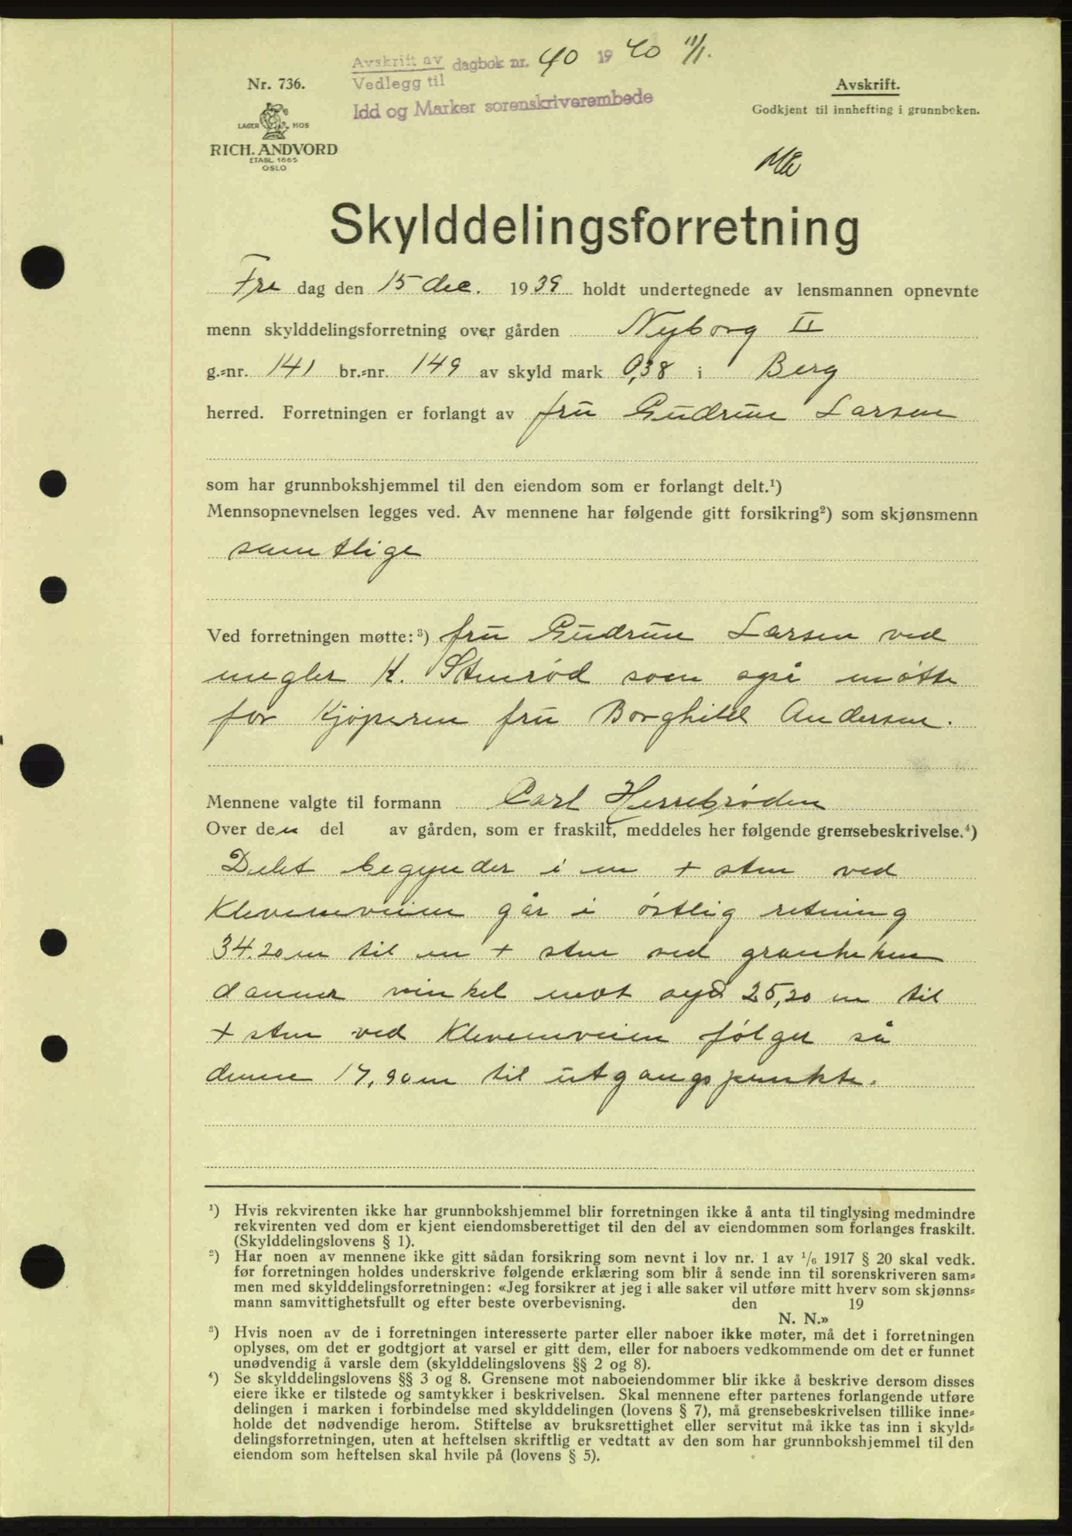 Avskrift av dagbok nr. 40 1940 11/1.
Vedlegg til
Idd og Marker sorenskriverembede
Nr. 736.
LAGER HOS
RICH. ANDVORD
ETABL. 1865
OSLO
Avskrift.
Godkjent til innhefting i grunnboken.
Skylddelingsforretning
Fre dag den 15 dec. 1939 holdt undertegnede av lensmannen opnevnte
menn skylddelingsforretning over gården Nyborg II
g.=nr. 141 br.=nr. 149 av skyld mark 0,38 i Berg
herred. Forretningen er forlangt av fru Gudrun Larsen
som har grunnbokshjemmel til den eiendom som er forlangt delt.¹)
Mennsopnevnelsen legges ved. Av mennene har følgende gitt forsikring²) som skjønsmenn
samtlige
Ved forretningen møtte:³) fru Gudrun Larsen ved
megler K. Stenrød som også møtte
for kjøperen fru Borghild Andersen.
Mennene valgte til formann Carl Herrebrøden
Over den del av gården, som er fraskilt, meddeles her følgende grensebeskrivelse.⁴)
Delet begynder i en + sten ved
Klevenveien går i østlig retning
34.20 m til en + sten ved granhekken
danner vinkel mot syd 25,20 m til
+ sten ved Klevenveien følger så
denne 17,90 m til utgangspunkte.
¹) Hvis rekvirenten ikke har grunnbokshjemmel blir forretningen ikke å anta til tinglysing medmindre
rekvirenten ved dom er kjent eiendomsberettiget til den del av eiendommen som forlanges fraskilt.
(Skylddelingslovens § 1).
²) Har noen av mennene ikke gitt sådan forsikring som nevnt i lov nr. 1 av 1/6 1917 § 20 skal vedk.
før forretningen holdes underskrive følgende erklæring som blir å sende inn til sorenskriveren sam=
men med skylddelingsforretningen: «Jeg forsikrer at jeg i alle saker vil utføre mitt hverv som skjønns=
mann samvittighetsfullt og efter beste overbevisning. den 19
N. N.»
³) Hvis noen av de i forretningen interesserte parter eller naboer ikke møter, må det i forretningen
oplyses, om det er godtgjort at varsel er gitt dem, eller for naboers vedkommende om det er funnet
unødvendig å varsle dem (skylddelingslovens §§ 2 og 8).
⁴) Se skylddelingslovens §§ 3 og 8. Grensene mot naboeiendommer blir ikke å beskrive dersom disses
eiere ikke er tilstede og samtykker i beskrivelsen. Skal mennene efter partenes forlangende utføre
delingen i marken i forbindelse med skylddelingen (lovens § 7), må grensebeskrivelsen tillike inne=
holde det nødvendige herom. Stiftelse av bruksrettighet eller servitut må ikke tas inn i skyld=
delingsforretningen, uten at heftelsen skriftlig er vedtatt av den som har grunnbokshjemmel til den
eiendom som heftelsen skal hvile på (lovens § 5).